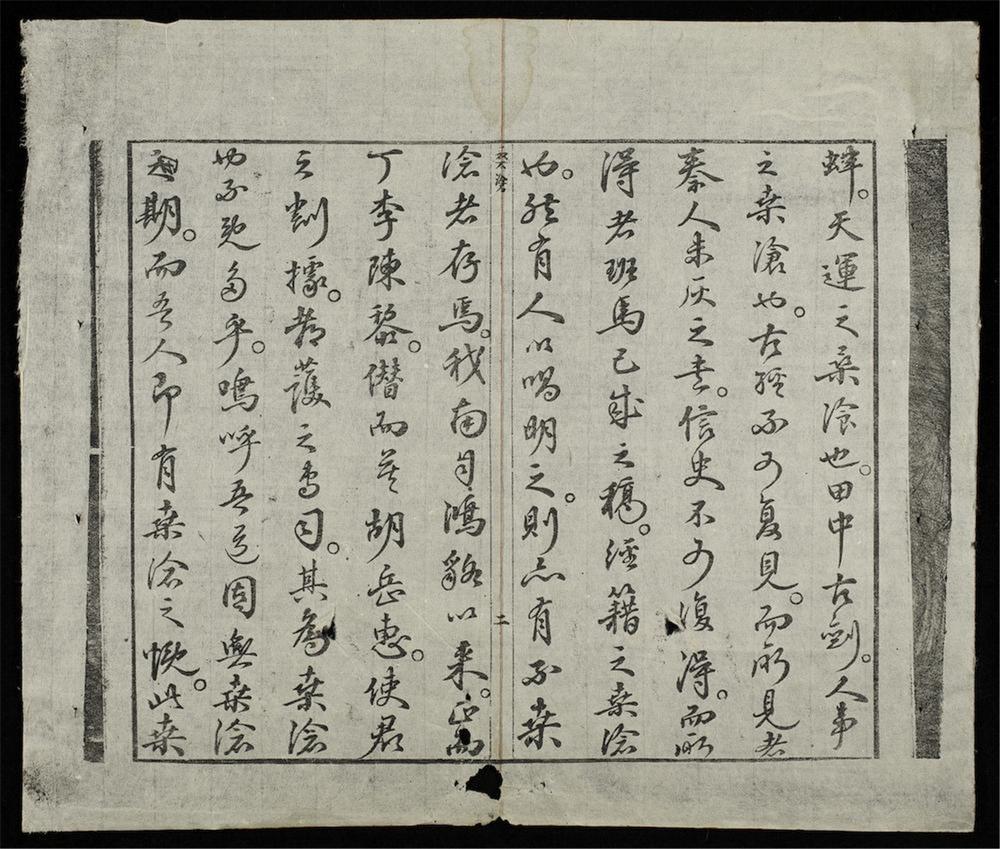 蚌。天運之桑滄也。田中古劍。人事
之桑滄也。古經不可复見。而所見者
秦人未灰之書。信史不可復得。而所
得者班馬已成之稿。經籍之桑滄
也。然有人以唱明之。則亦有不桑
桑滄
二
滄者存焉。我南自鴻貉以來。正而
丁李陳黎。僭而莫胡岳惠。使君
之割據。都護之專司。其為桑滄
也不既多乎。嗚呼吾道固與桑滄
期。而吾人即有桑滄之慨。此桑